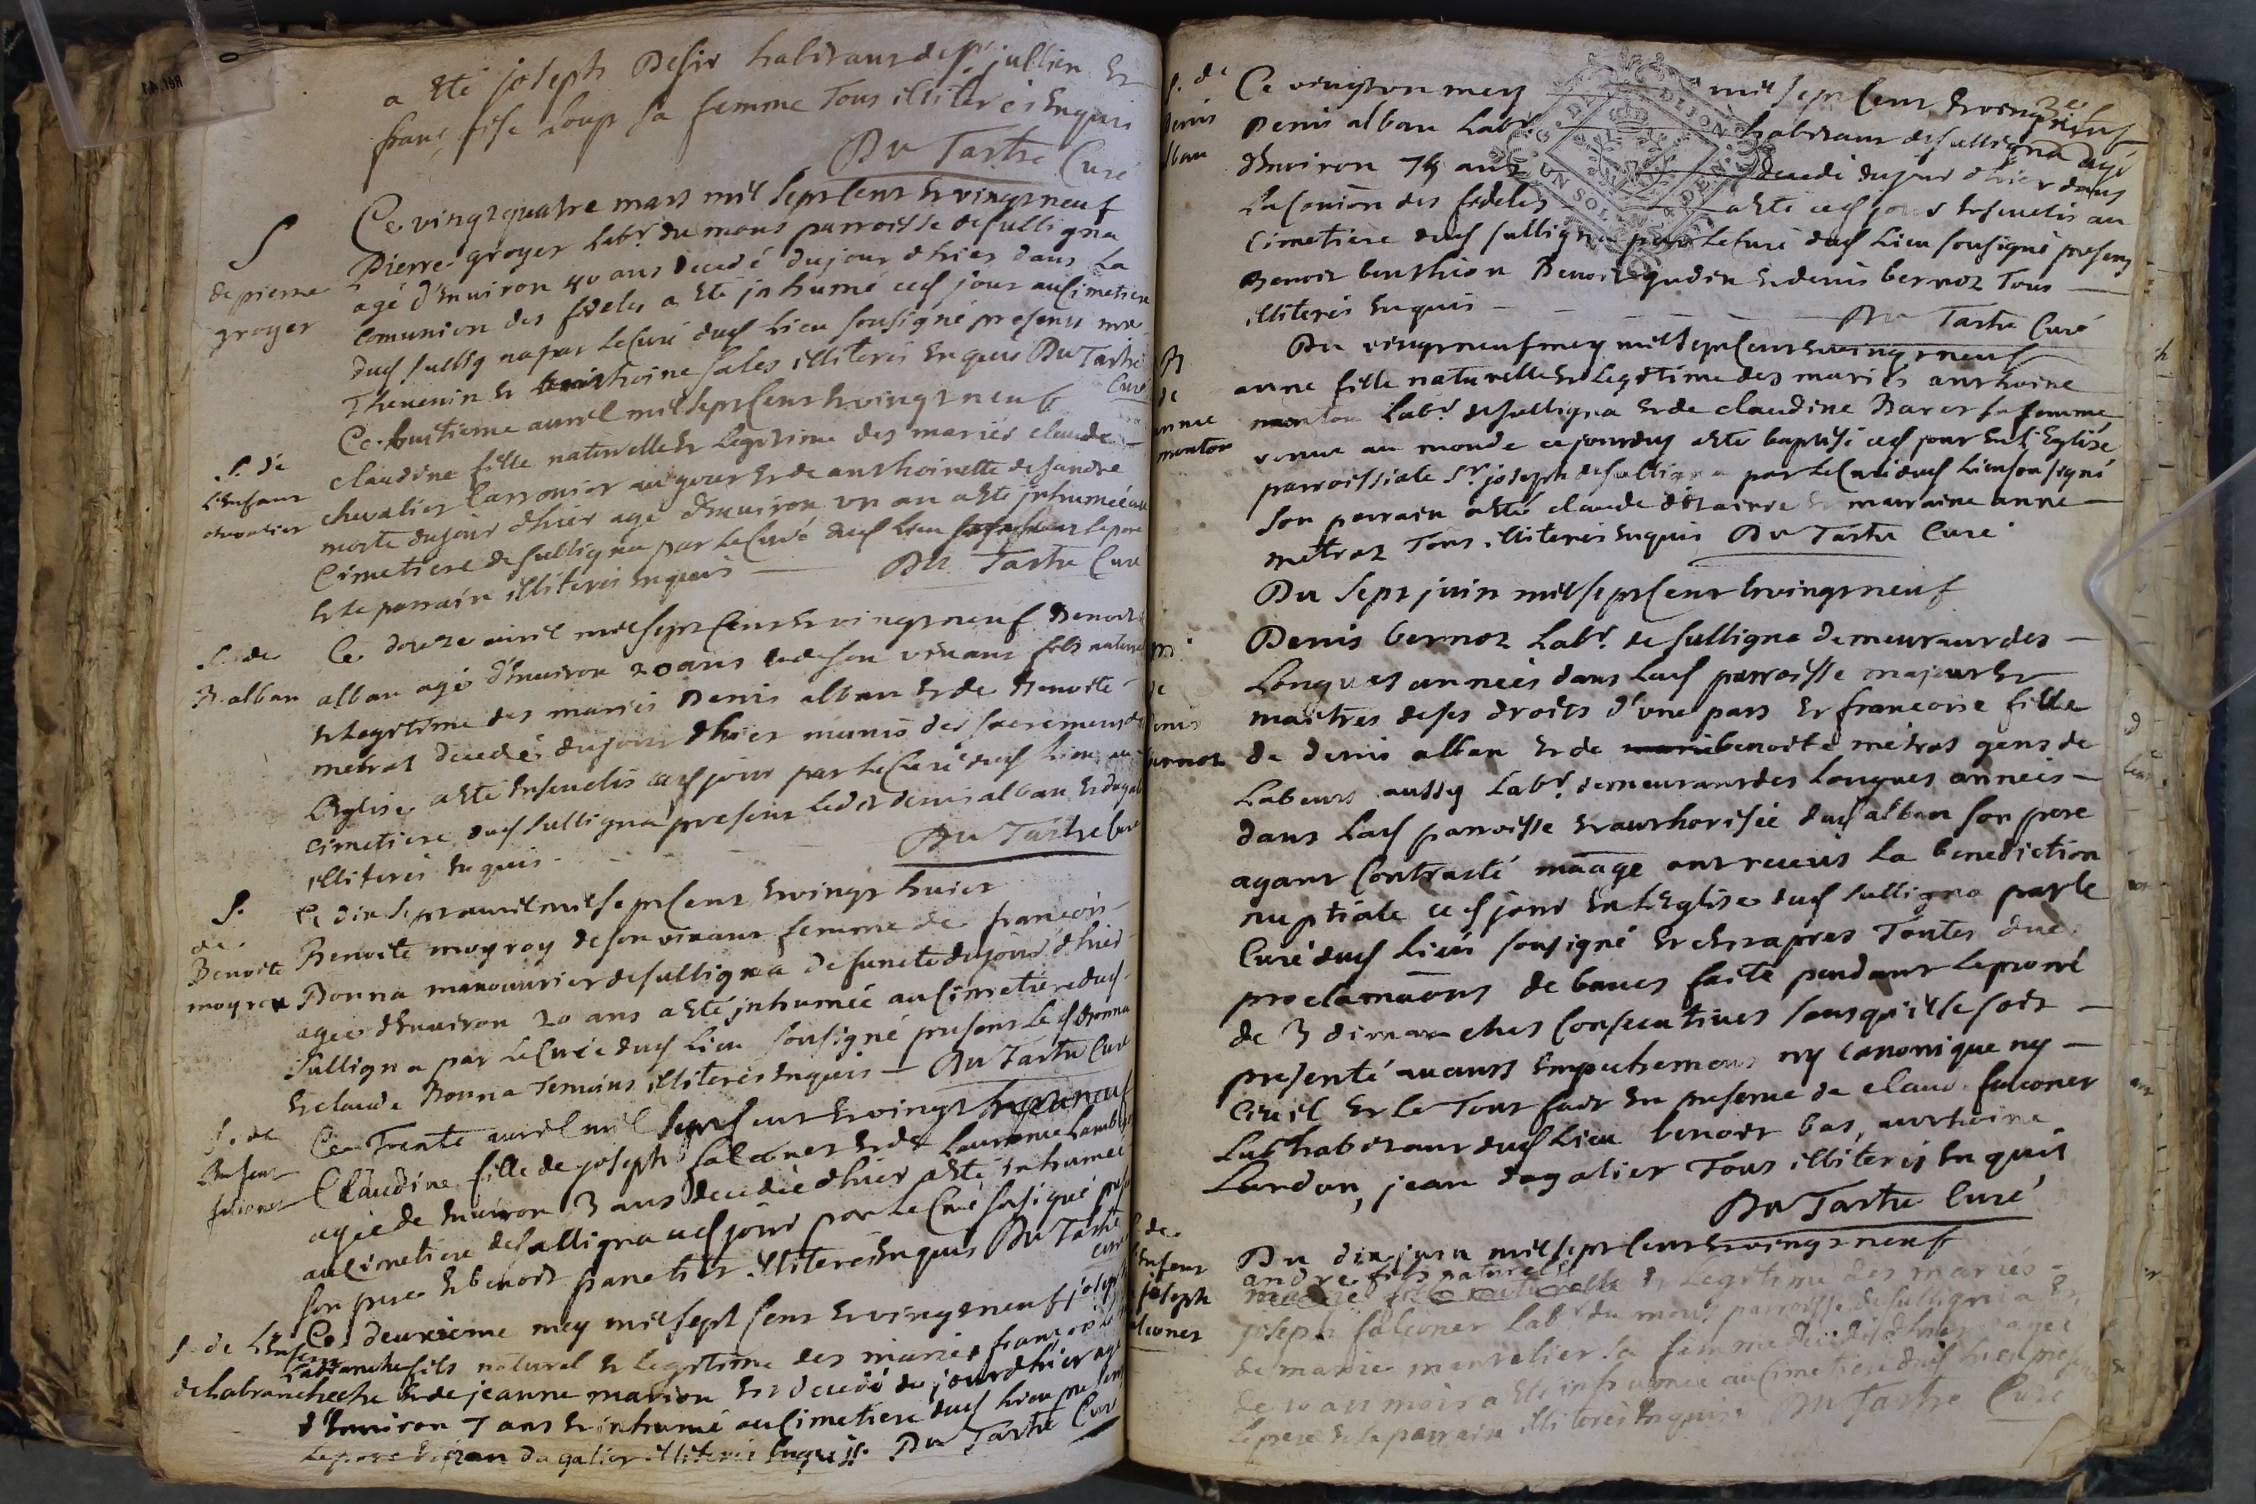 a Eté joseph Desir habitant de St jullien Et
fransoise Loup sa femme Tous illiterés Enquis
Du Tartre Curé
S
de pierre
groyer
Ce vingt quatre mars mil sept Cent Et vingt neuf
Pierre groyer Labr du mons parroisse de sulligna
agé d'Environ 40 ans Decedé du jour d'hier dans La
Comunion des fideles a Eté inhumé ced jour au Cimetiere
dud sulligna par Le Curé dud Lieu sousigné presents
Thevenin Et anthoine sales illiterés Enquis Du Tartre
Curé
S. de
L'Enfant
chevalier
Ce huitieme avril mil sept Cent Et vingt neuf
claudine fille naturelle Et Legitime des mariés claude
chevalier Et de anthoinette
morte du jour d'hier agé d'Environ un an a Eté inhumée au
Cimetiere de sulligna par Le Curé dud Lieu Le pere
Et Le parrain illiterés Enquis — Du Tartre Curé
S. de
B. alban
Ce douze avril mil sept Cent Et vingt neuf Benoit
alban agé d'Environ 20 ans de son vivant fils naturel
Et Legitime des mariés Denis alban Et de Benoite
metrat decedé du jour d'hier munis des sacremens de
L'Eglise a Eté Ensevelis ced jour par Le Curé dud Lieu au
cimetiere dud sulligna presens Ledit denis alban Et
illiterés Enquis Du Tartre Curé
S.
de
Benoite
moyrou
Ce dix sept avril mil sept Cent Et vingt huict
Benoite moyroy de son vivant femme de françois
Bonna manouvrier de sulligna defuncte du jour d'hier
agée d'Environ 20 ans a Eté inhumée au Cimetiere dud
Sulligna par Le Curé dud Lieu sousigné presens Led Bonna
Et claude Bonna Temoins illiterés Enquis — Du Tartre Curé
S. de
L'Enfant
falconer
Ce Trente avril mil sept Cent Et vingt neuf
Claudine fille de joseph falconer Et de Laurence
agée de Environ 3 ans decedée d'hier a Eté inhumée
au Cimetiere de sulligna ced jour par Le Curé sousigné
son pere Et benoit panetier illiterés Enquis Du Tartre
Curé
S. de L'Enfant
de Labranche
Ce deuxieme mey mil sept Cent Et vingt neuf joseph
Labranche fils naturel Et Legitime des mariés francois
Et de jeanne marion Et decedé du jour d'hier agé
d'Environ 7 ans Et inhumé au Cimetiere dud Lieu presens
Le pere Et jean dagalier illiterés Enquis. Du Tartre Curé
G. DE DIJON
UN SOL 4 DEN.
S. de
Denis
alban
Ce vingt un mey mil sept Cent Et vingt neuf
Denis alban Labr habitant de sulligna agé
d'Environ 75 ans decedé du jour d'hier dans
La Comuion des fideles a Eté ced jour Ensevelis au
Cimetiere dud sulligna par Le Curé dud Lieu sousigné presens
Benoit Benoit gudin Et denis bernoz Tous —
illiterés Enquis — Du Tartre Curé
B
de
anne
monton
Du vingt neuf mey mil sept Cent Et vingt neuf
anne fille naturelle Et Legitime des mariés anthoine
monton Labr de sulligna Et de claudine Baret sa femme
venue au monde ce jourduy a Eté baptisé ced jour En L'Eglise
parroissiale St joseph de sulligna par Le Curé dud Lieu sousigné
son parrain a Eté claude Et marraine anne —
metraz Tous illiterés Enquis Du Tartre Curé
m.
de
denis
bernoz
Du Sept juin mil sept Cent Et vingt neuf
Denis bernoz Labr de sulligna demeurant des —
Longues années dans Lad parroisse majeur Et
maitres de ses droits d'une part Et francoise fille
de denis alban Et de benoite métrat gens de
Labeurs aussy Labr demeurant des Longues années —
dans Lad parroisse Et authorisée dud alban son pere
ayant Contracté mãage ont receus La benediction
nuptiale ced jour En L'Eglise dud sulligna par Le
Curé dud Lieu sousigné Et apres Toutes due
proclamaõns de bancs faite pendant Le prone
de 3 dimanches Consecutives sans qu'il se soit —
presenté aucuns Empechemens ny canonique ny —
Civil Et Le Tout fait En presence de claude falconer
habitant dud Lieu benoit bas, anthoine
Lardon, jean dagalier Tous illiterés Enquis
Du Tartre Curé
S de
L'Enfent
joseph
falconer
Du dix juin mil sept Cent Et vingt neuf
andré fils naturel
Et Legitime des mariés —
joseph falconer Labr du mons parroisse de sulligna Et
de marie sa femme decedé d'hier agée
de mois a Eté inhumée au Cimetiere dud Lieu presens
Le pere Et Le parrain illiterés Enquis. Du Tartre Curé